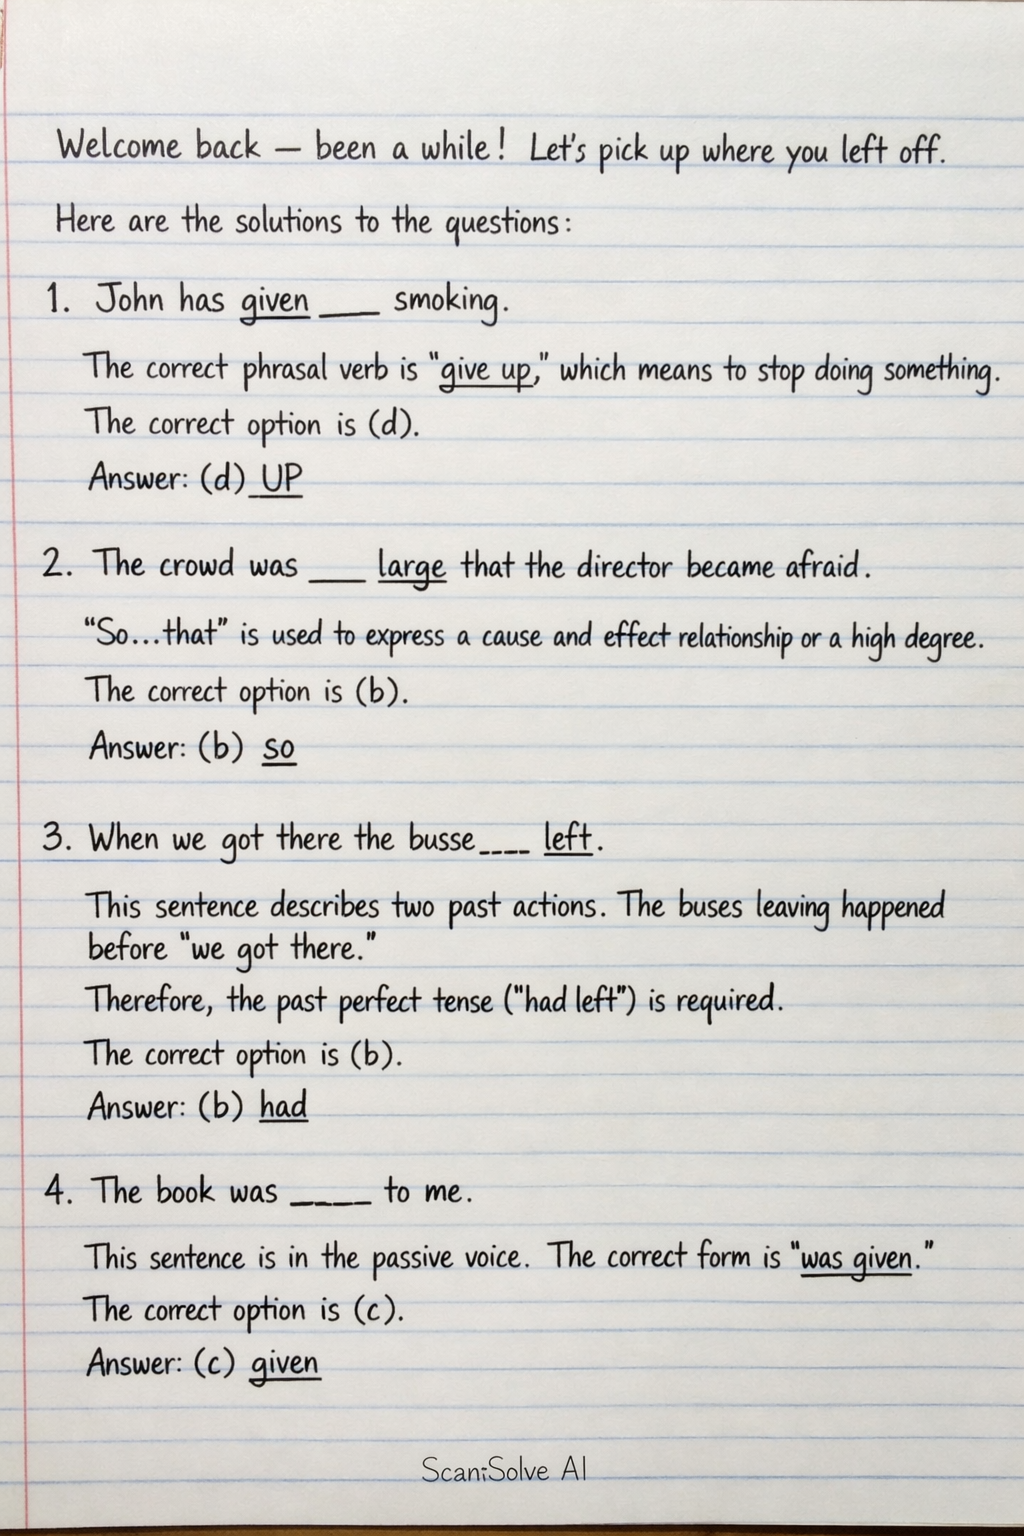 Welcome back — been a while! Let's pick up where you left off.
Here are the solutions to the questions:
1. John has given ___ smoking.
The correct phrasal verb is "give up," which means to stop doing something.
The correct option is (d).
Answer: (d) UP
2. The crowd was ___ large that the director became afraid.
"So...that" is used to express a cause and effect relationship or a high degree.
The correct option is (b).
Answer: (b) so
3. When we got there the busse____ left.
This sentence describes two past actions. The buses leaving happened
before "we got there."
Therefore, the past perfect tense ("had left") is required.
The correct option is (b).
Answer: (b) had
4. The book was ____ to me.
This sentence is in the passive voice. The correct form is "was given."
The correct option is (c).
Answer: (c) given
Scan:Solve AI